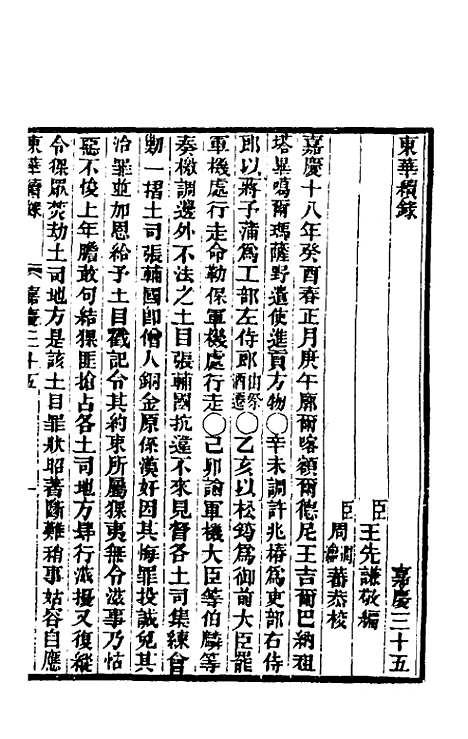 東華續錄
嘉慶三十五
臣王先謙敬編
臣周潤蕃恭校
嘉慶十八年癸酉春正月庚午廓爾喀額爾德尼王吉爾巴納祖
塔畢噶爾瑪薩野遣使進貢方物○辛未調許兆椿為吏部右侍
郎以蔣予蒲為工部左侍郎由祭酒遷○乙亥以松筠為御前大臣罷
軍機處行走命勒保軍機處行走○己卯諭軍機大臣等伯麟等
奏檄調邊外不法之土目張輔國抗違不來見督各土司集練會
勦一摺土司張輔國卽僧人銅金原係漢奸因其悔罪投誠免其
治罪並加恩給予土目戳記令其約束所屬猓夷無令滋事乃怙
惡不悛上年膽敢句結猓匪搶占各土司地方肆行滋擾又復縱
令猓眾焚劫土司地方是該土目罪狀昭著斷難稍事姑容自應
東華續錄
嘉慶三十五
一